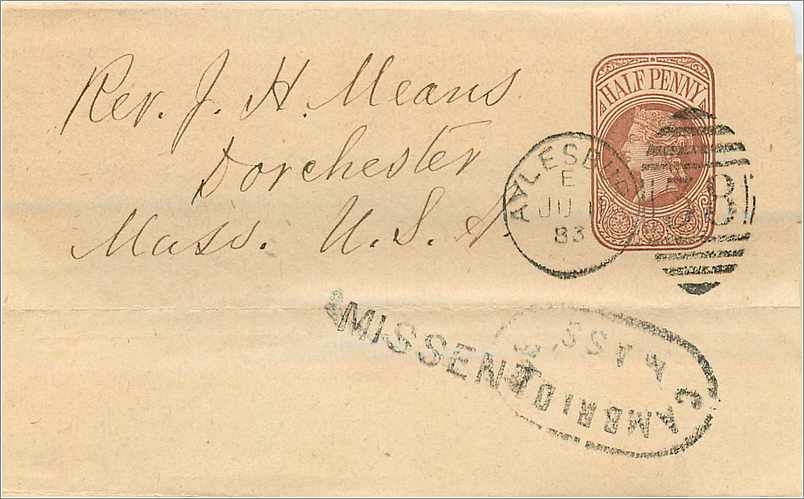 Rev. J. H. Means
Dorchester
Mass. U.S.A
HALF PENNY
AYLESBURY
E
JU 1
83
MISSENT
CAMBRIDGE
MASS.